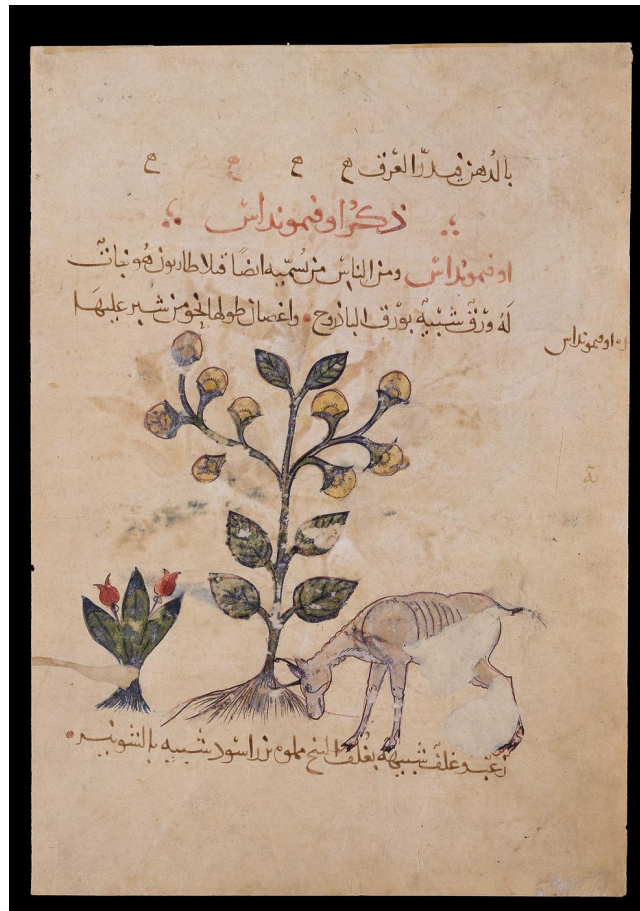 بالدهن فيدر العرق ح ح ح ح
ذكر اوفيمونداس
اوفيمونداس ومن الناس من سُمّيه ايضاً فلاطاريون هو نبات
لَهُ ورق شبيه بورق الباذروج واغصان طولها نحو من شبر عليها
اوفيمونداس
زغب وغلف شبيهة بغُلف البنج مملوه بزر اسود شبيه بالشونيز